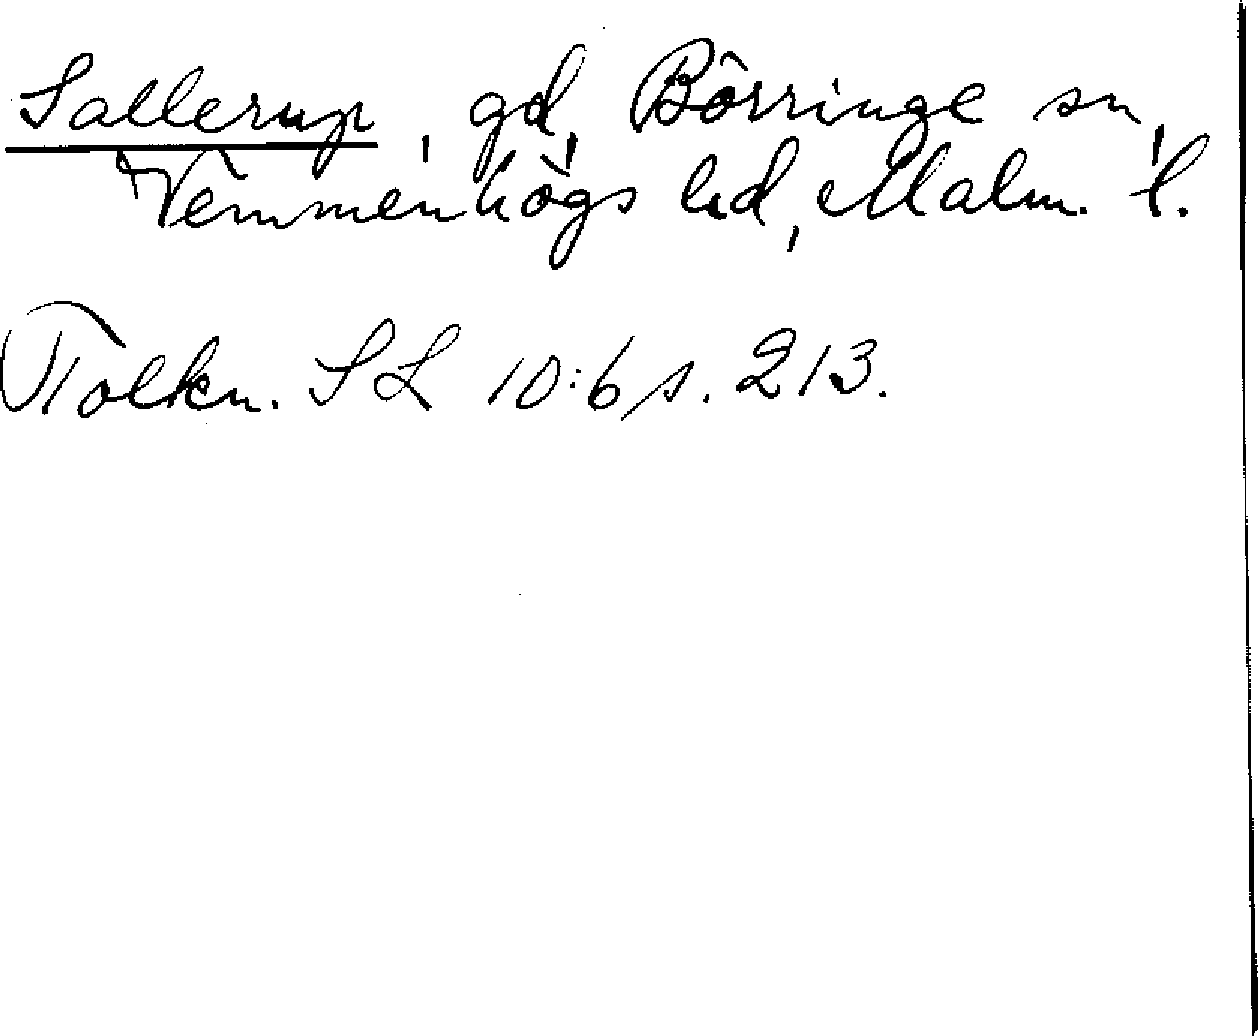 Sallerup, gd, Börringe sn,
Vemmenhögs hd, Malm. l.
Tolkn. SL 10:6 s. 213.